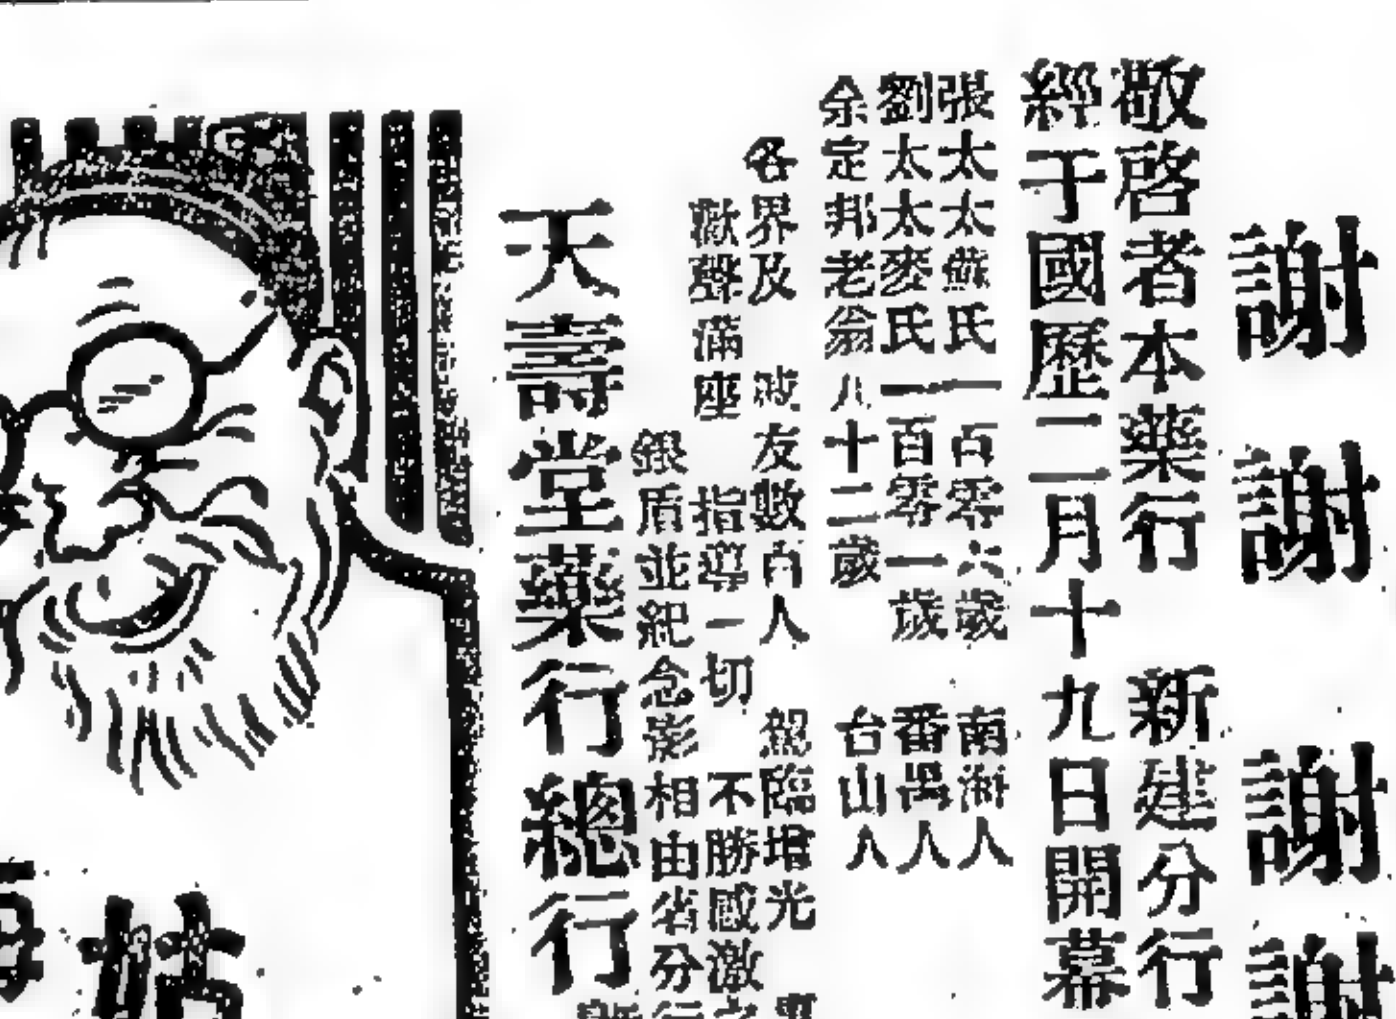 謝 謝 謝 謝
敬啓者本藥行 新建分行
經于國歷二月十九日開幕
張太太蘇氏一百零六歲 南海人
劉太太麥氏一百零一歲 番禺人
余定邦老翁八十二歲 台山人
各界及 友數百人 駕臨增光
歡聲滿座 指導一切 不勝感激之
銀盾並紀念影相由省分行
天壽堂藥行總行